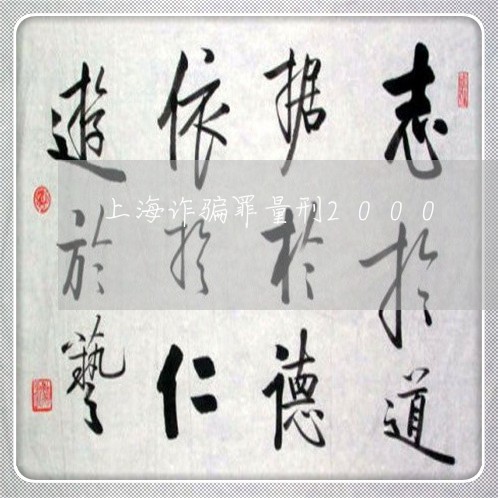 志於道
据於德
依於仁
遊於藝
上海诈骗罪量刑2000